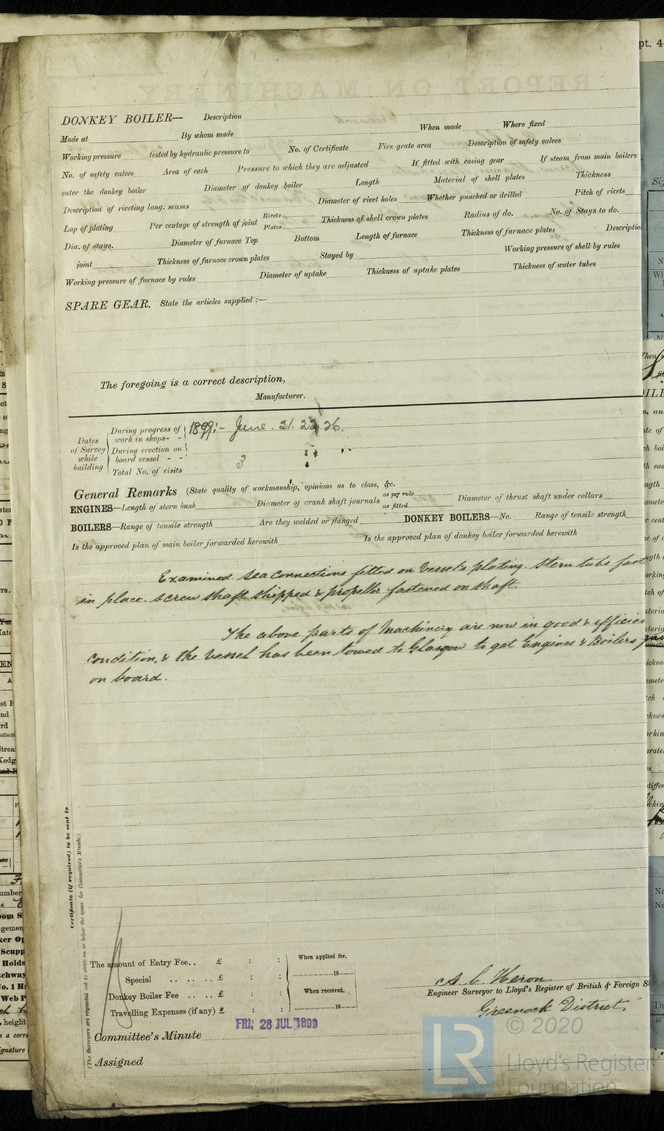 DONKEY BOILER— Description
Made at By whom made When made Where fixed
Working pressure tested by hydraulic pressure to No. of Certificate Fire grate area Description of safety valves
No. of safety valves Area of each Pressure to which they are adjusted If fitted with easing gear If steam from main boilers
enter the donkey boiler Diameter of donkey boiler Length Material of shell plates Thickness
Description of riveting long. seams Diameter of rivet holes Whether punched or drilled Pitch of rivets
Lap of plating Per centage of strength of joint Rivets Plates Thickness of shell crown plates Radius of do. No. of Stays to do.
Dia. of stays. Diameter of furnace Top Bottom Length of furnace Thickness of furnace plates Description
joint Thickness of furnace crown plates Stayed by Working pressure of shell by rules
Working pressure of furnace by rules Diameter of uptake Thickness of uptake plates Thickness of water tubes
SPARE GEAR. State the articles supplied :—
The foregoing is a correct description,
Manufacturer.
Dates of Survey while building
During progress of work in shops- - 1899:- June. 21. 23. 26.
During erection on board vessel - -
Total No. of visits 3
General Remarks (State quality of workmanship, opinions as to class, &c.
ENGINES—Length of stern bush Diameter of crank shaft journals as per rule as fitted Diameter of thrust shaft under collars
BOILERS—Range of tensile strength Are they welded or flanged DONKEY BOILERS—No. Range of tensile strength
Is the approved plan of main boiler forwarded herewith Is the approved plan of donkey boiler forwarded herewith
Examined sea connections fitted on Vessels plating. Stern tube fast
in place. screw shaft shipped & propeller fastened on shaft.
The above parts of Machinery are now in good & efficien
condition, & the vessel has been towed to Glasgow to get Engines & Boilers
on board.
Certificate (if required) to be sent to
(The Surveyors are requested not to write on or below the space for Committee's Minute.)
The amount of Entry Fee.. £ : : When applied for,
Special .. .. .. £ : : 18
Donkey Boiler Fee .. .. £ : : When received,
Travelling Expenses (if any) £ : : 18
A. C. Heron
Engineer Surveyor to Lloyd's Register of British & Foreign S
Greenock District.
FRI. 28 JUL 1899
Committee's Minute
Assigned
© 2020
LR
Lloyd's Register
Foundation